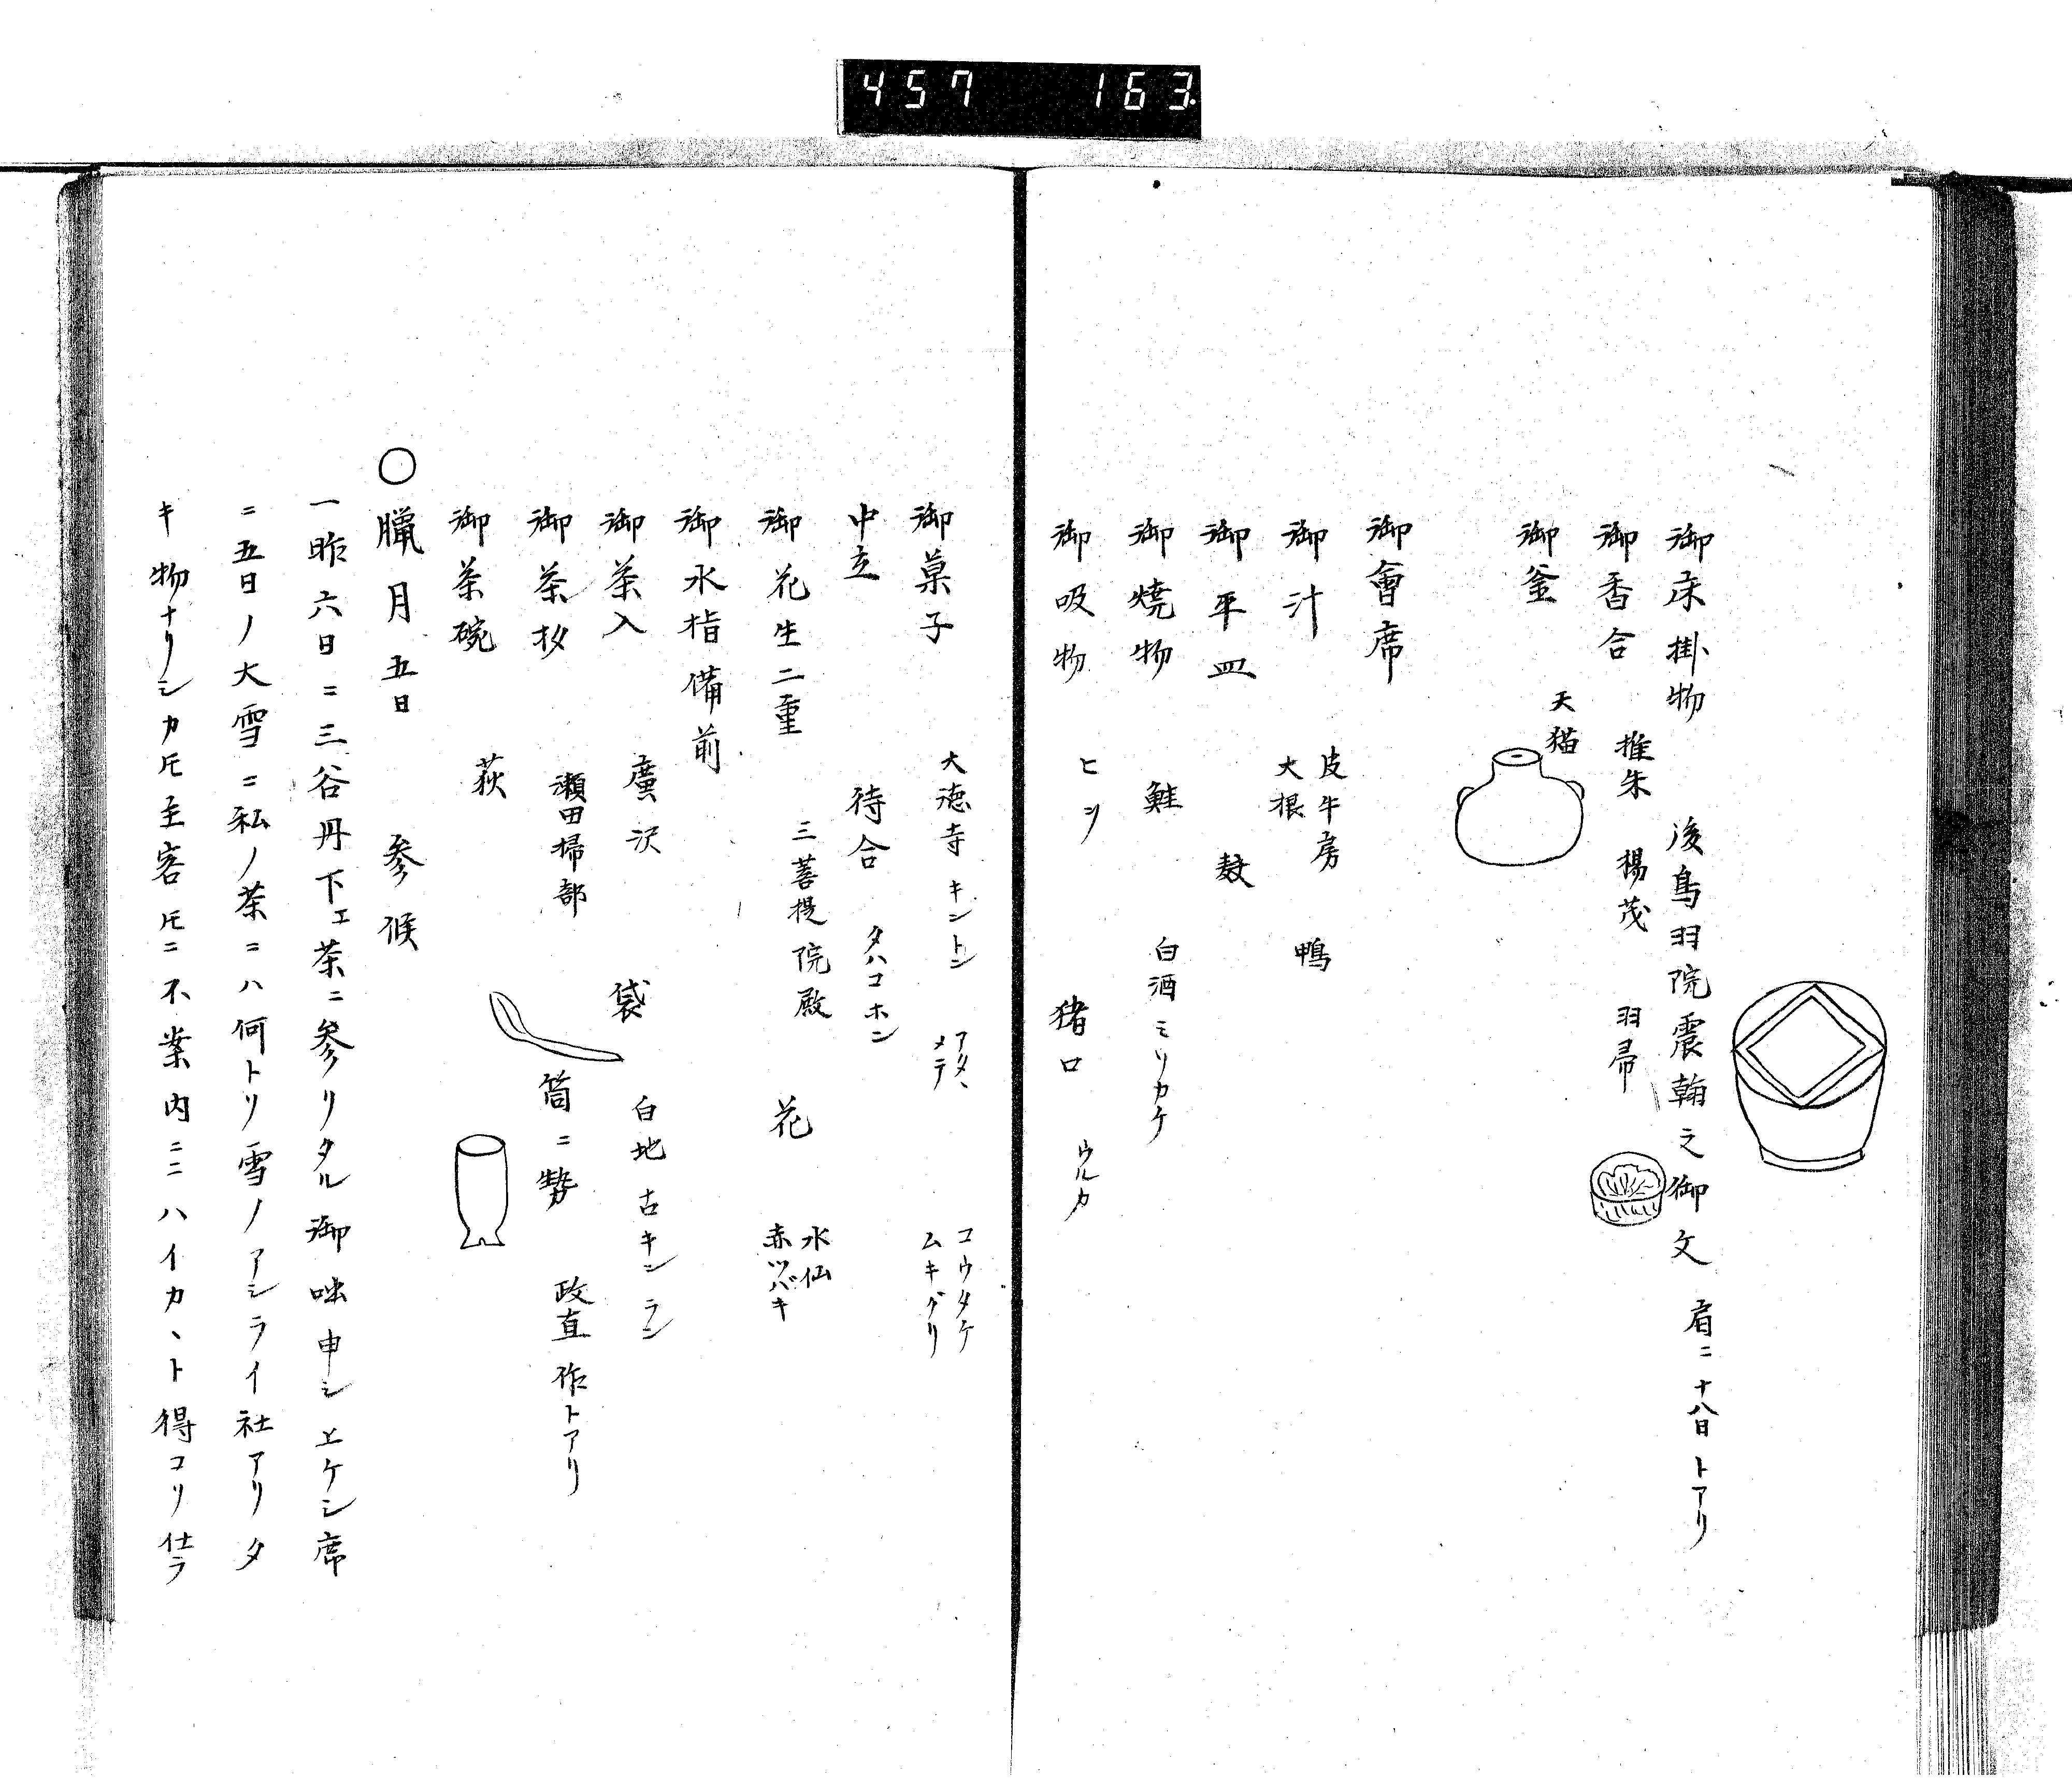 457 163.
御床掛物 後鳥羽院震翰之御文 肩ニ十八日トアリ
御香合 推朱 楊茂 羽帚
御釜 天猫
御會席
御汁 皮牛房 大根 鴨
御平皿 麸
御焼物 鮭 白酒ミリカケ
御吸物 ヒシ 猪口 ウルカ
御菓子 大徳寺キントン アタヽメテ コウタケ ムキグリ
中立 待合 タハコホン
御花生二重 三菩提院殿 花 水仙 赤ツバキ
御水指備前
御茶入 廣沢 袋 白地古キンラン
御茶杦 瀬田掃部 筒ニ勢 政直作トアリ
御茶碗 萩
○臘月五日 参候
一昨六日ニ三谷丹下エ茶ニ参リタル御咄申シ上ケシ席
ニ五日ノ大雪ニ私ノ茶ニハ何トソ雪ノアシライ社アリタ
キ物ナリシカ𪜈主客𪜈ニ不案内ニニハイカヽト得コソ仕ラ